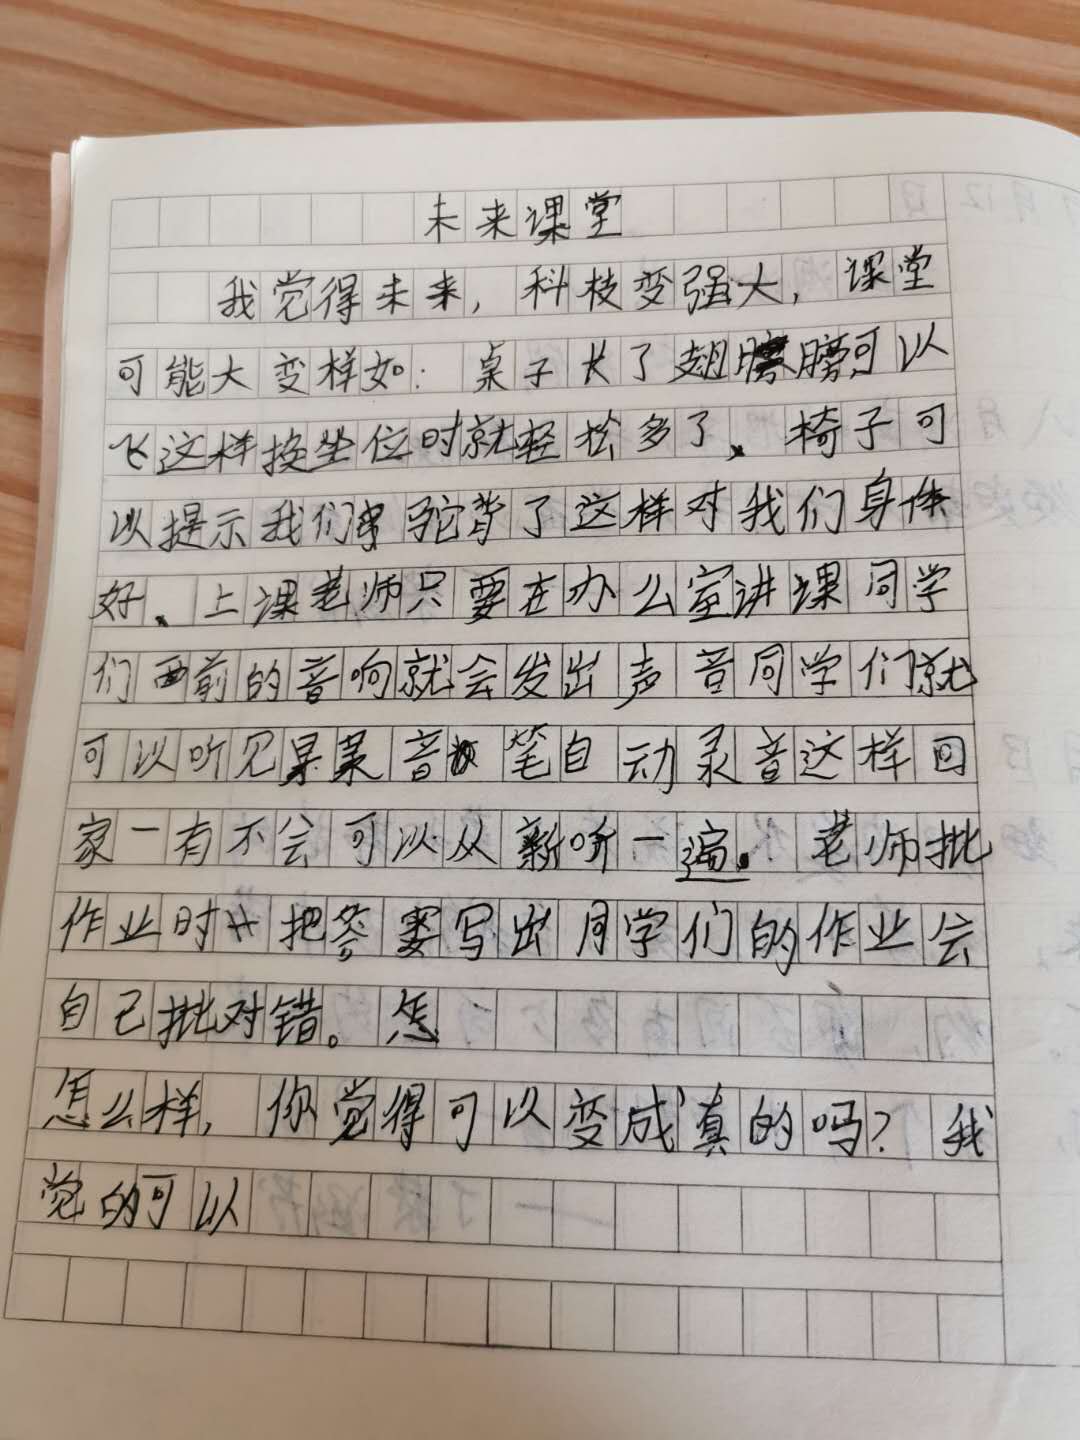 未来课堂
我觉得未来，科技变强大，课堂
可能大变样如：桌子长了翅膀可以
飞这样换坐位时就轻松多了、椅子可
以提示我们驼背了这样对我们身体
好、上课老师只要在办么室讲课同学
们面前的音响就会发出声音同学们就
可以听见录音笔自动录音这样回
家一有不会可以从新听一遍。老师批
作业时把答案写出同学们的作业会
自己批对错。怎
怎么样，你觉得可以变成真的吗？我
觉的可以